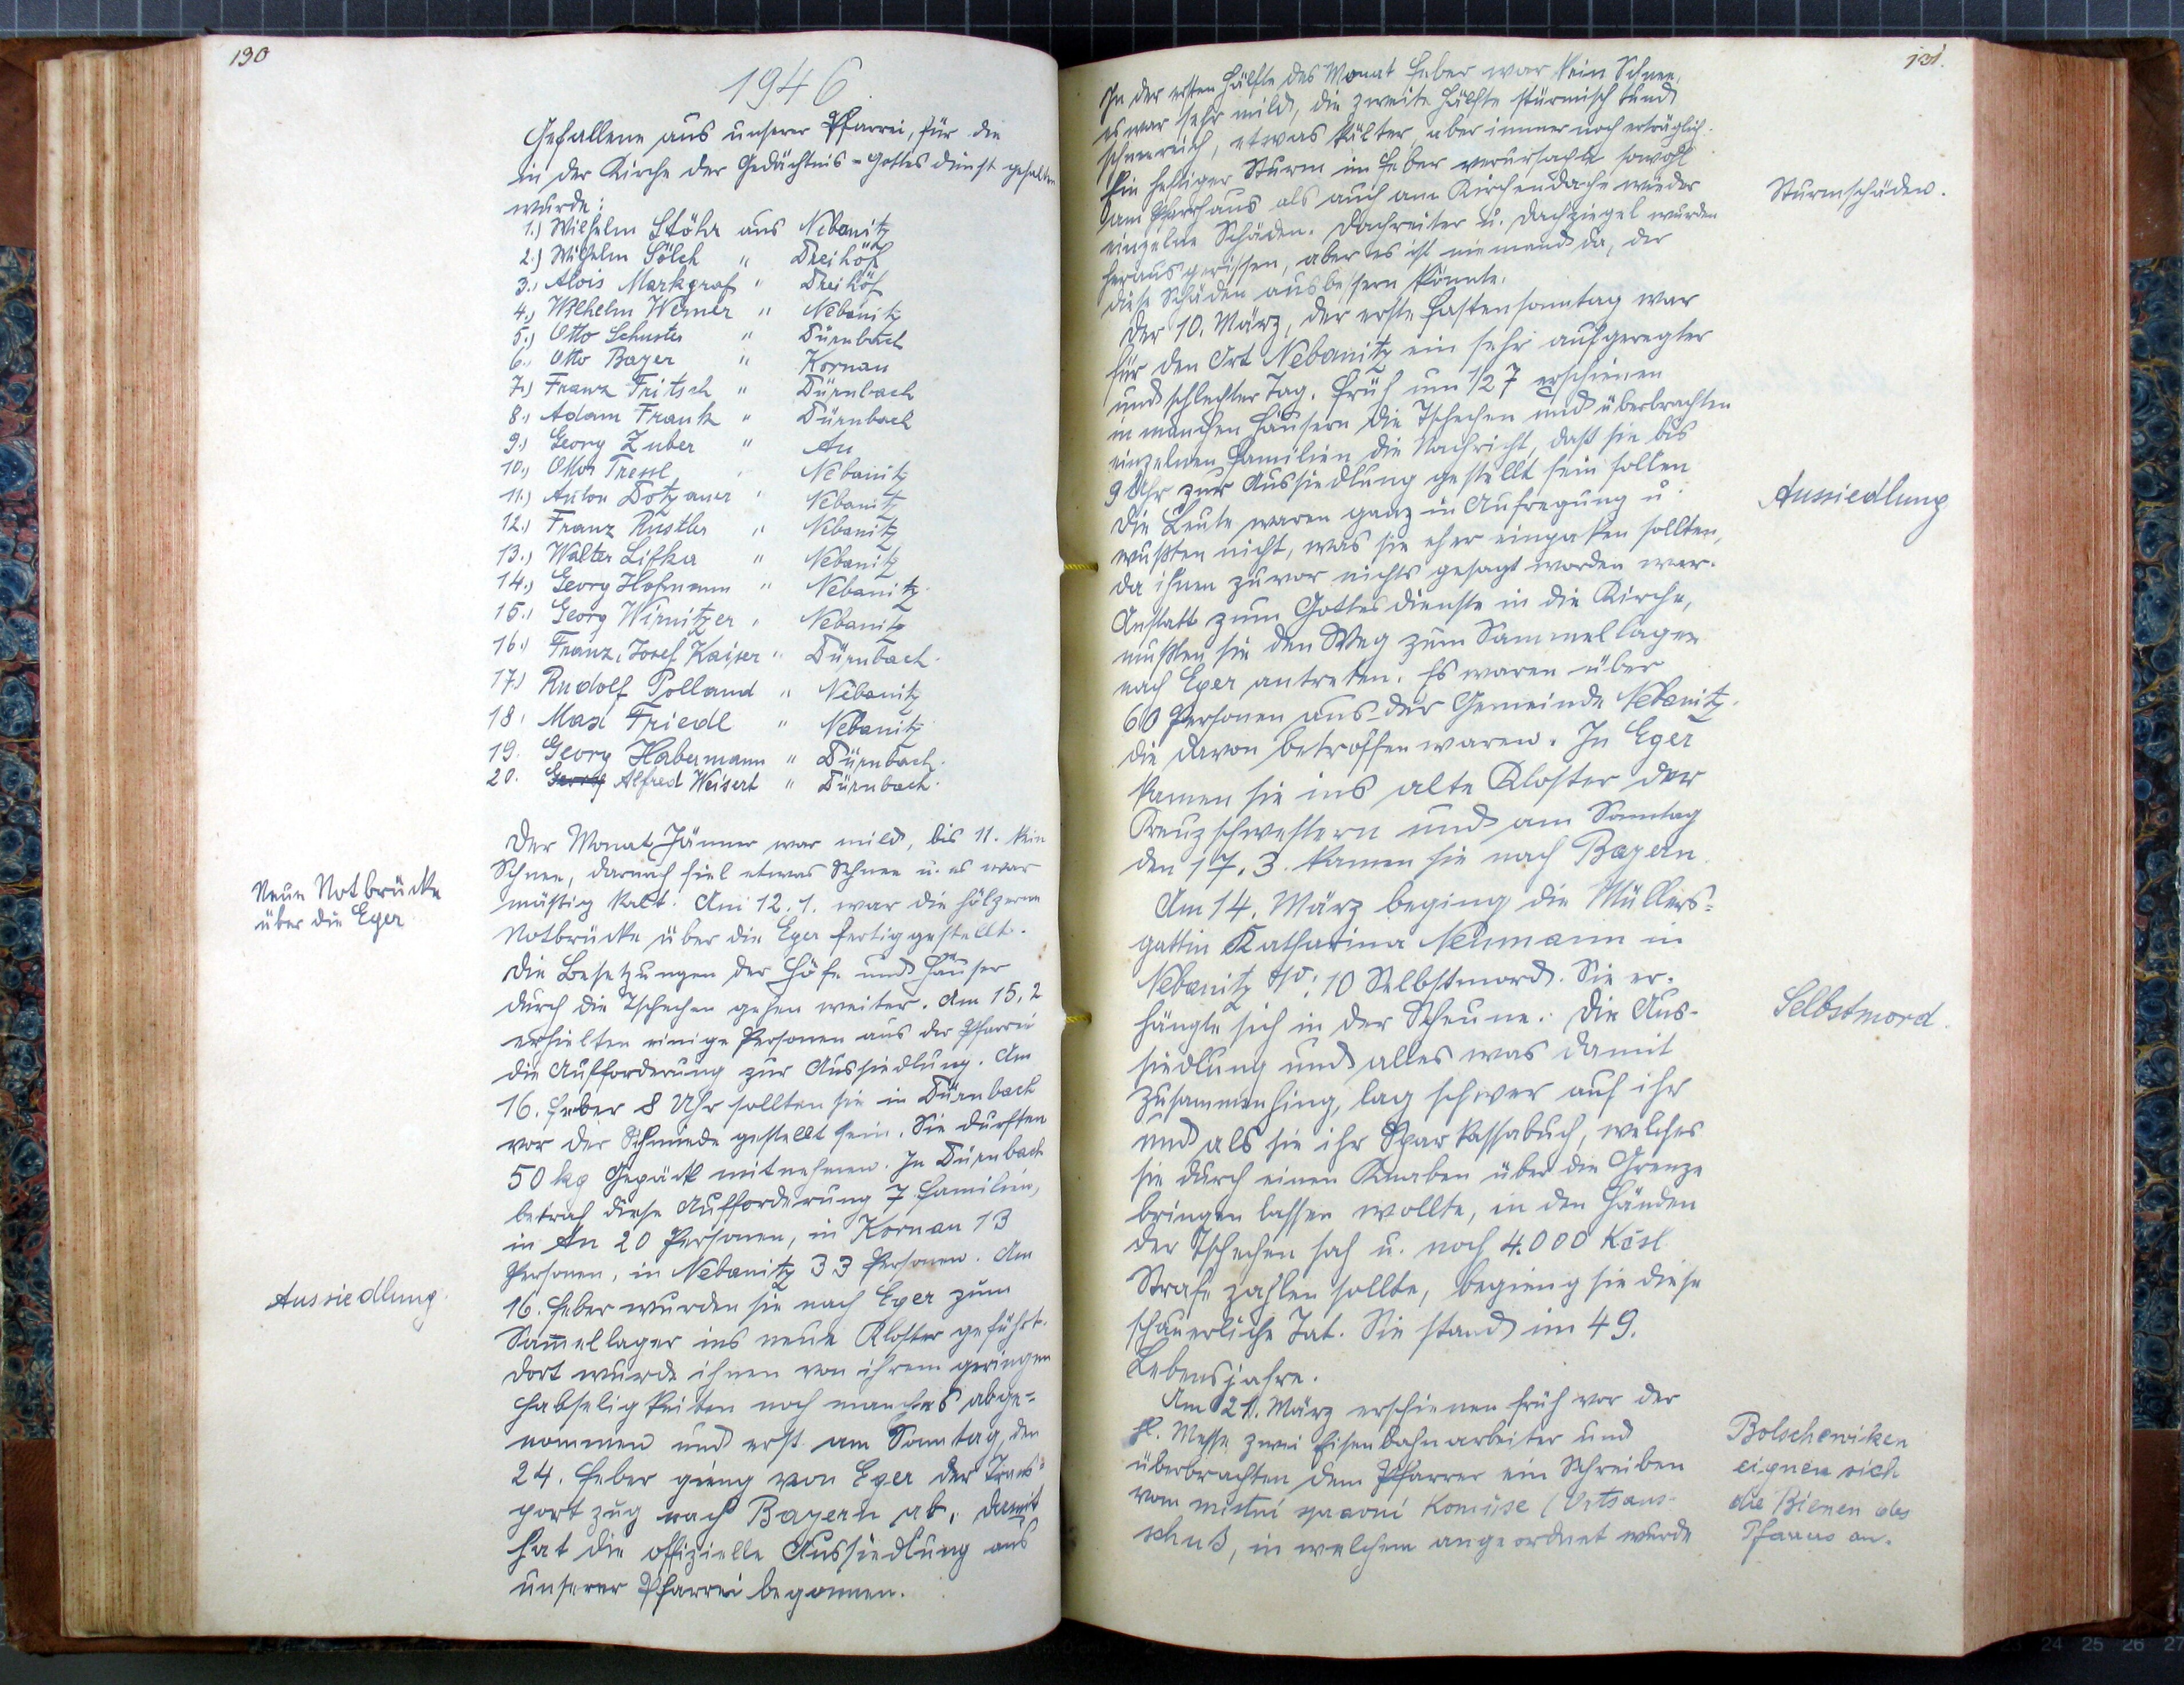 130
1946.
Gefallene aus unserer Pfarrei, für die
in der Kirche der Gedächtnis-Gottesdienst gehalten
wurde:
1.) Wilhelm Stöhr aus Nebanitz
2.) Wilhelm Sölch " Dreihöf
3., Alois Markgraf " Dreihöf
4., Wilhelm Werner " Nebanitz
5.) Otto Schuster " Dürnbach
6., Otto Bayer " Kornau
7.) Franz Fritsch " Dürnbach
8., Adam Frank " Dürnbach
9.) Georg Zuber " Au
10., Otto Tressl " Nebanitz
11.) Anton Dotzauer " Nebanitz
12.) Franz Rustler " Nebanitz
13.) Walter Lifka " Nebanitz
14., Georg Hofmann " Nebanitz
15.) Georg Wirnitzer " Nebanitz
16.) Franz, Josef Kaiser " Dürnbach.
17.) Rudolf Polland " Nebanitz
18. Max Friedl " Nebanitz
19. Georg Habermann " Dürnbach.
20. Georg Alfred Weisert " Dürnbach.
Der Monat Jänner war mild, bis 11. kein
Schnee, darnach fiel etwas Schnee u. es war
Neue Notbrücke
über die Eger
mäßig kalt. Am 12.1. war die hölzerne
Notbrücke über die Eger fertiggestellt.
Die Besetzungen der Höfe und Häuser
durch die Tschechen gehen weiter. Am 15.2
erhielten einige Personen aus der Pfarrei
die Aufforderung zur Aussiedlung. Am
16. Feber 8 Uhr sollten sie in Dürnbach
vor der Schmiede gestellt sein. Sie durften
50 kg Gepäck mitnehmen. In Dürnbach
betraf diese Aufforderung 7 Familien,
in Au 20 Personen, in Kornau 13
Personen, in Nebanitz 33 Personen. Am
Aussiedlung.
16. Feber wurden sie nach Eger zum
Sam̅ellager ins neue Kloster geführt.
Dort wurde ihnen von ihrem geringen
Habseligkeiten noch manches abge=
nommen und erst am Sonntag, den
24. Feber gieng von Eger der Trans=
portzug nach Bayern ab. Damit
hat die offizielle Aussiedlung aus
unserer Pfarrei begonnen.
131.
In der ersten Hälfte des Monat Feber war kein Schnee,
es war sehr mild, die zweite Hälfte stürmisch und
schneereich, etwas kälter, aber immer noch erträglich.
Ein heftiger Sturm im Feber verursachte sowohl
am Pfarrhaus als auch am Kirchendache wieder
Sturmschäden.
einzelne Schäden. Dachreiter u. Dachziegel wurden
herausgerissen, aber es ist niemand da, der
diese Schäden ausbessern könnte.
Der 10. März, der erste Fastensonntag war
für den Ort Nebanitz ein sehr aufgeregter
und schlechter Tag. Früh um 1/2 7 erschienen
in manchen Häusern die Tschechen und überbrachten
einzelnen Familien die Nachricht, daß sie bis
9 Uhr zur Aussiedlung gestellt sein sollen
Aussiedlung
Die Leute waren ganz in Aufregung u.
wußten nicht, was sie eher einpaken sollten,
da ihnen zuvor nichts gesagt worden war.
Anstatt zum Gottesdienste in die Kirche,
mußten sie den Weg zum Sammellager
nach Eger antreten. Es waren über
60 Personen aus der Gemeinde Nebanitz.
die davon betroffen waren. In Eger
kamen sie ins alte Kloster der
Kreuzschwestern und am Sonntag
den 17.3. kamen sie nach Bayern.
Am 14. März beging die Müllers=
gattin Katharina Neumann in
Nebanitz No: 10 Selbstmord. Sie er-
hängte sich in der Scheune. Die Aus-
Selbstmord.
siedlung und alles was damit
zusammenhing, lag schwer auf ihr
und als sie ihr Sparkassabuch, welches
sie durch einen Knaben über die Grenze
bringen lassen wollte, in den Händen
der Tschechen sah u. noch 4.000 Kčsl
Strafe zahlen sollte, begieng sie diese
schauerliche Tat. Sie stand im 49.
Lebensjahre.
Am 21. März erschienen früh vor der
hl. Messe zwei Eisenbahnarbeiter und
überbrachten dem Pfarrer ein Schreiben
vom mistní komise (Ortsaus-
schuß, in welchem angeordnet wurde
Bolschewiken
eignen sich
die Bienen des
Pfarrers an.